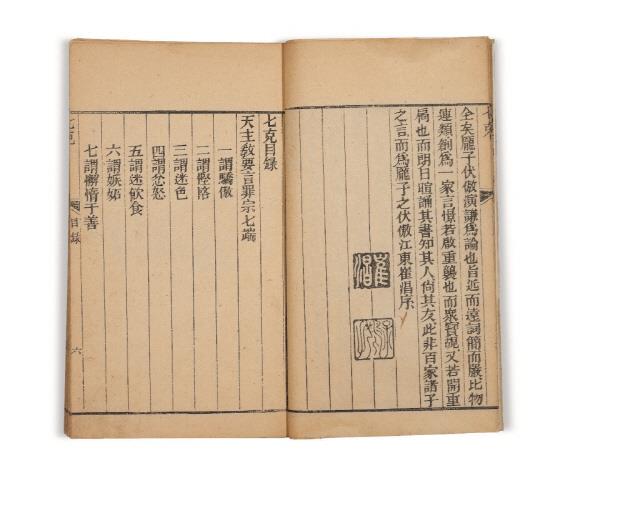 全矣龐子伏傲演謙為論也旨近而遠詞簡而嚴比物
連類創為一家言憬若啟重襲也而衆寶覩又若開重
扃也而朗日暄誦其書知其人尚其友此非百家諸子
之言而為龐子之伏傲江東崔淐序
崔淐
七克目錄
天主教要言罪宗七端
一謂驕傲
二謂慳悋
三謂迷色
四謂忿怒
五謂迷飲食
六謂嫉妬
七謂懈惰于善
七克
目錄
六